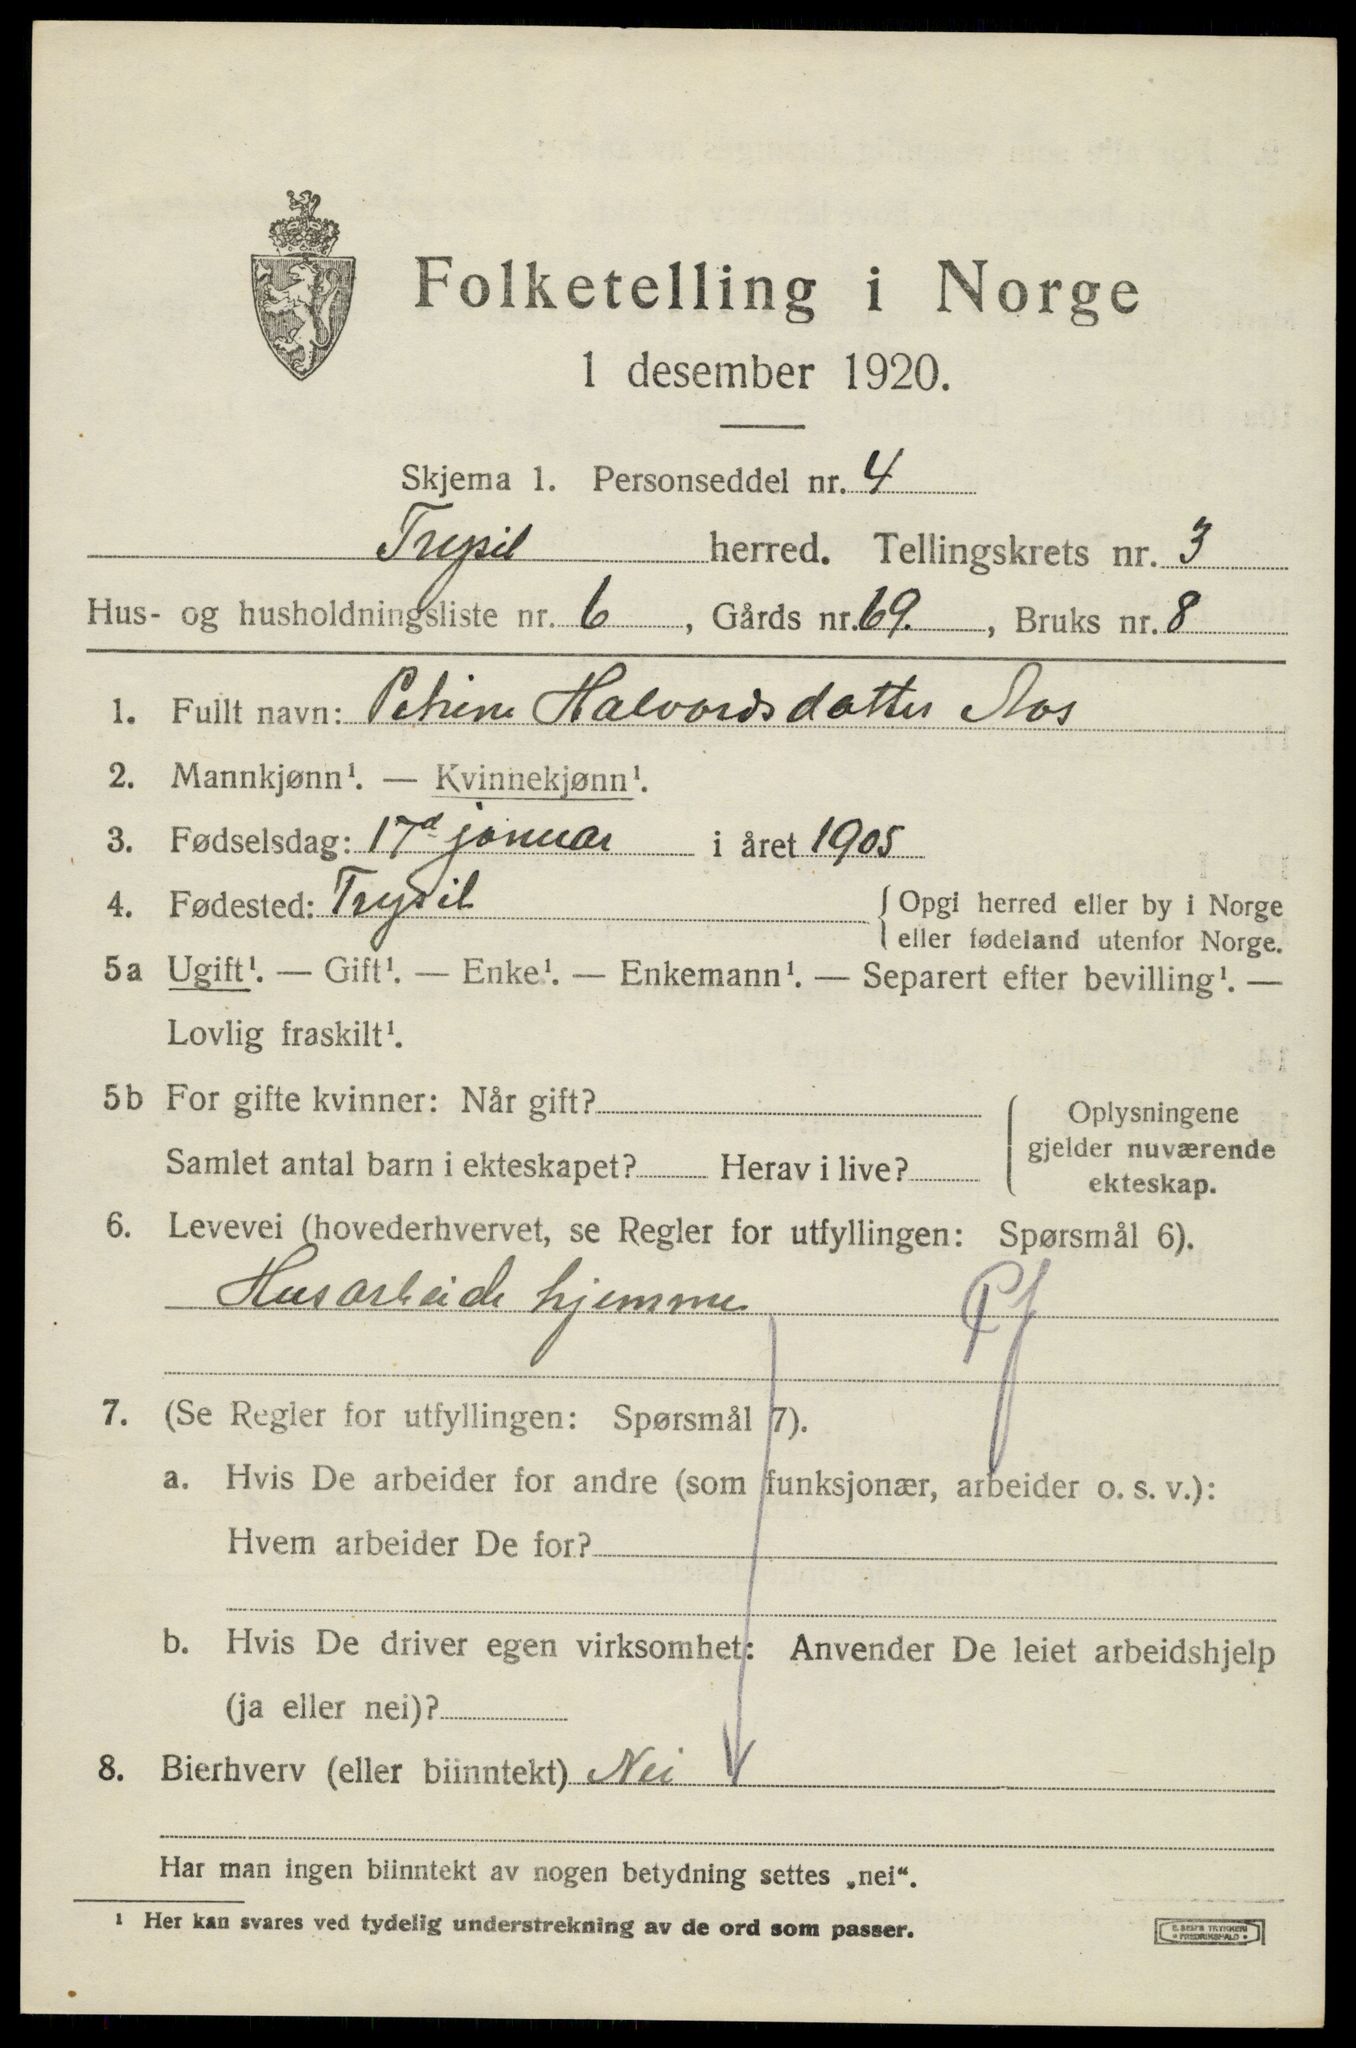 Folketelling i Norge
1 desember 1920.
Skjema 1. Personseddel nr. 4
Trysil herred. Tellingskrets nr. 3
Hus- og husholdningsliste nr. 6, Gårds nr. 69., Bruks nr. 8
1. Fullt navn: Petrine Halvordsdatter Aos
2. Mannkjønn¹. — Kvinnekjønn¹.
3. Fødselsdag: 17d januar i året 1905
4. Fødested: Trysil { Opgi herred eller by i Norge
eller fødeland utenfor Norge.
5a Ugift¹. — Gift¹. — Enke¹. — Enkemann¹. — Separert efter bevilling¹. —
Lovlig fraskilt¹.
5b For gifte kvinner: Når gift?
Samlet antal barn i ekteskapet? Herav i live?
Oplysningene
gjelder nuværende
ekteskap.
6. Levevei (hovederhvervet, se Regler for utfyllingen: Spørsmål 6).
Husarbeide hjemme Pf
7. (Se Regler for utfyllingen: Spørsmål 7).
a. Hvis De arbeider for andre (som funksjonær, arbeider o. s. v.):
Hvem arbeider De for?
b. Hvis De driver egen virksomhet: Anvender De leiet arbeidshjelp
(ja eller nei)?
8. Bierhverv (eller biinntekt) Nei
Har man ingen biinntekt av nogen betydning settes „nei“.
¹ Her kan svares ved tydelig understrekning av de ord som passer.
E. SEM'S TRYKKERI
FREDRIKSHALD